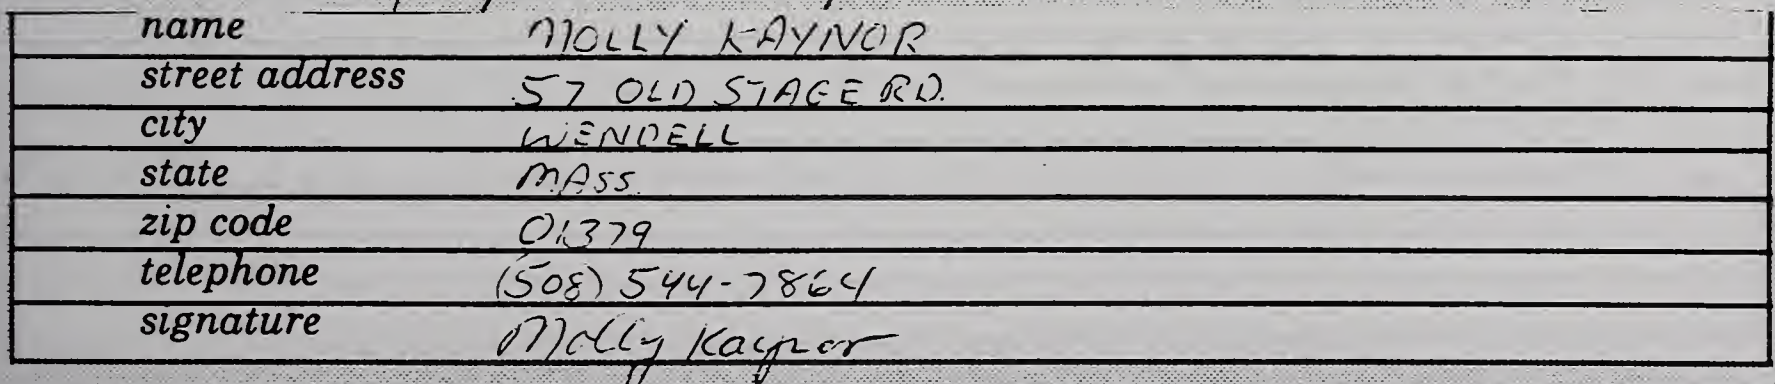 name MOLLY KAYNOR
street address 57 OLD STAGE RD.
city WENDELL
state MASS.
zip code 01379
telephone (508) 544-7864
signature Molly Kaynor